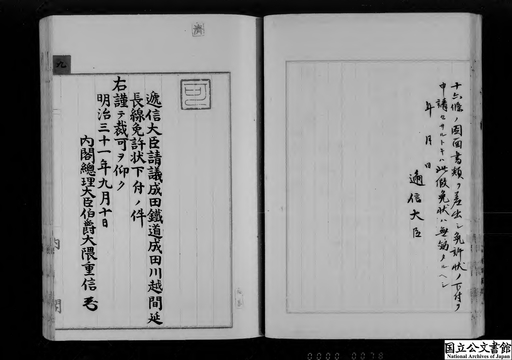 十六條ノ圖面書類ヲ差出シ免許狀ノ下付ヲ
申請セサルトキハ此假免狀ハ無効タルヘシ
年 月 日
遞信大臣
遞信大臣請議成田鐵道成田川越間延
長線免許狀下付ノ件
右謹テ裁可ヲ仰ク
明治三十一年九月十日
內閣總理大臣伯爵大隈重信
九
內閣
0000 0078
国立公文書館
National Archives of Japan